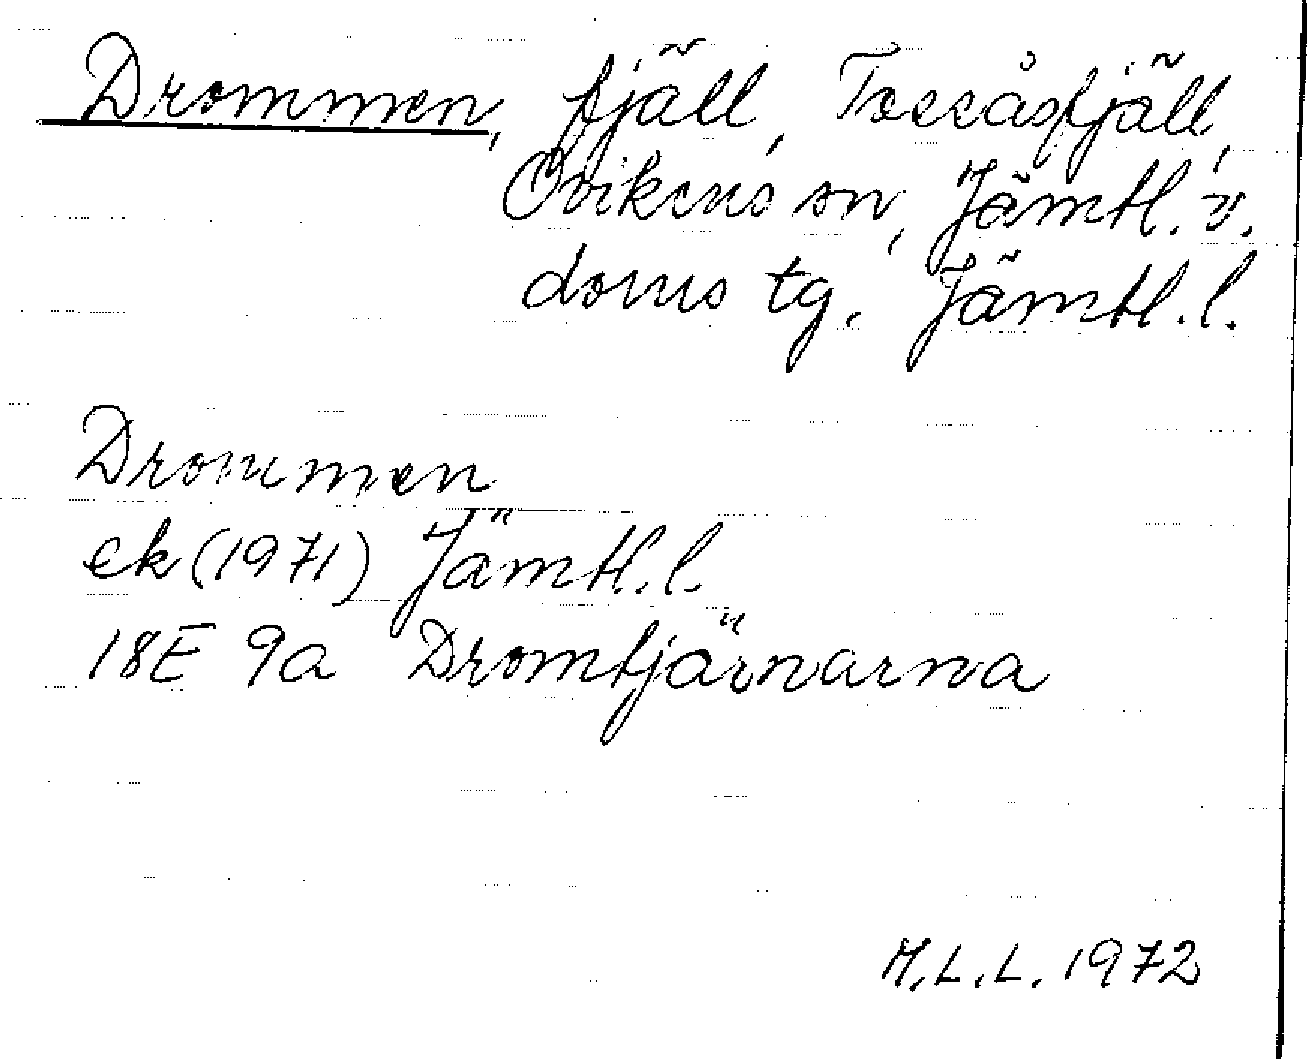 Drommen, fjäll, Tossåsfjäll,
Ovikens sn, Jämtl. v.
doms tg. Jämtl. l.
Drommen
ek (1971) Jämtl. l.
18E 9a Dromtjärnarna
M.L.L. 1972